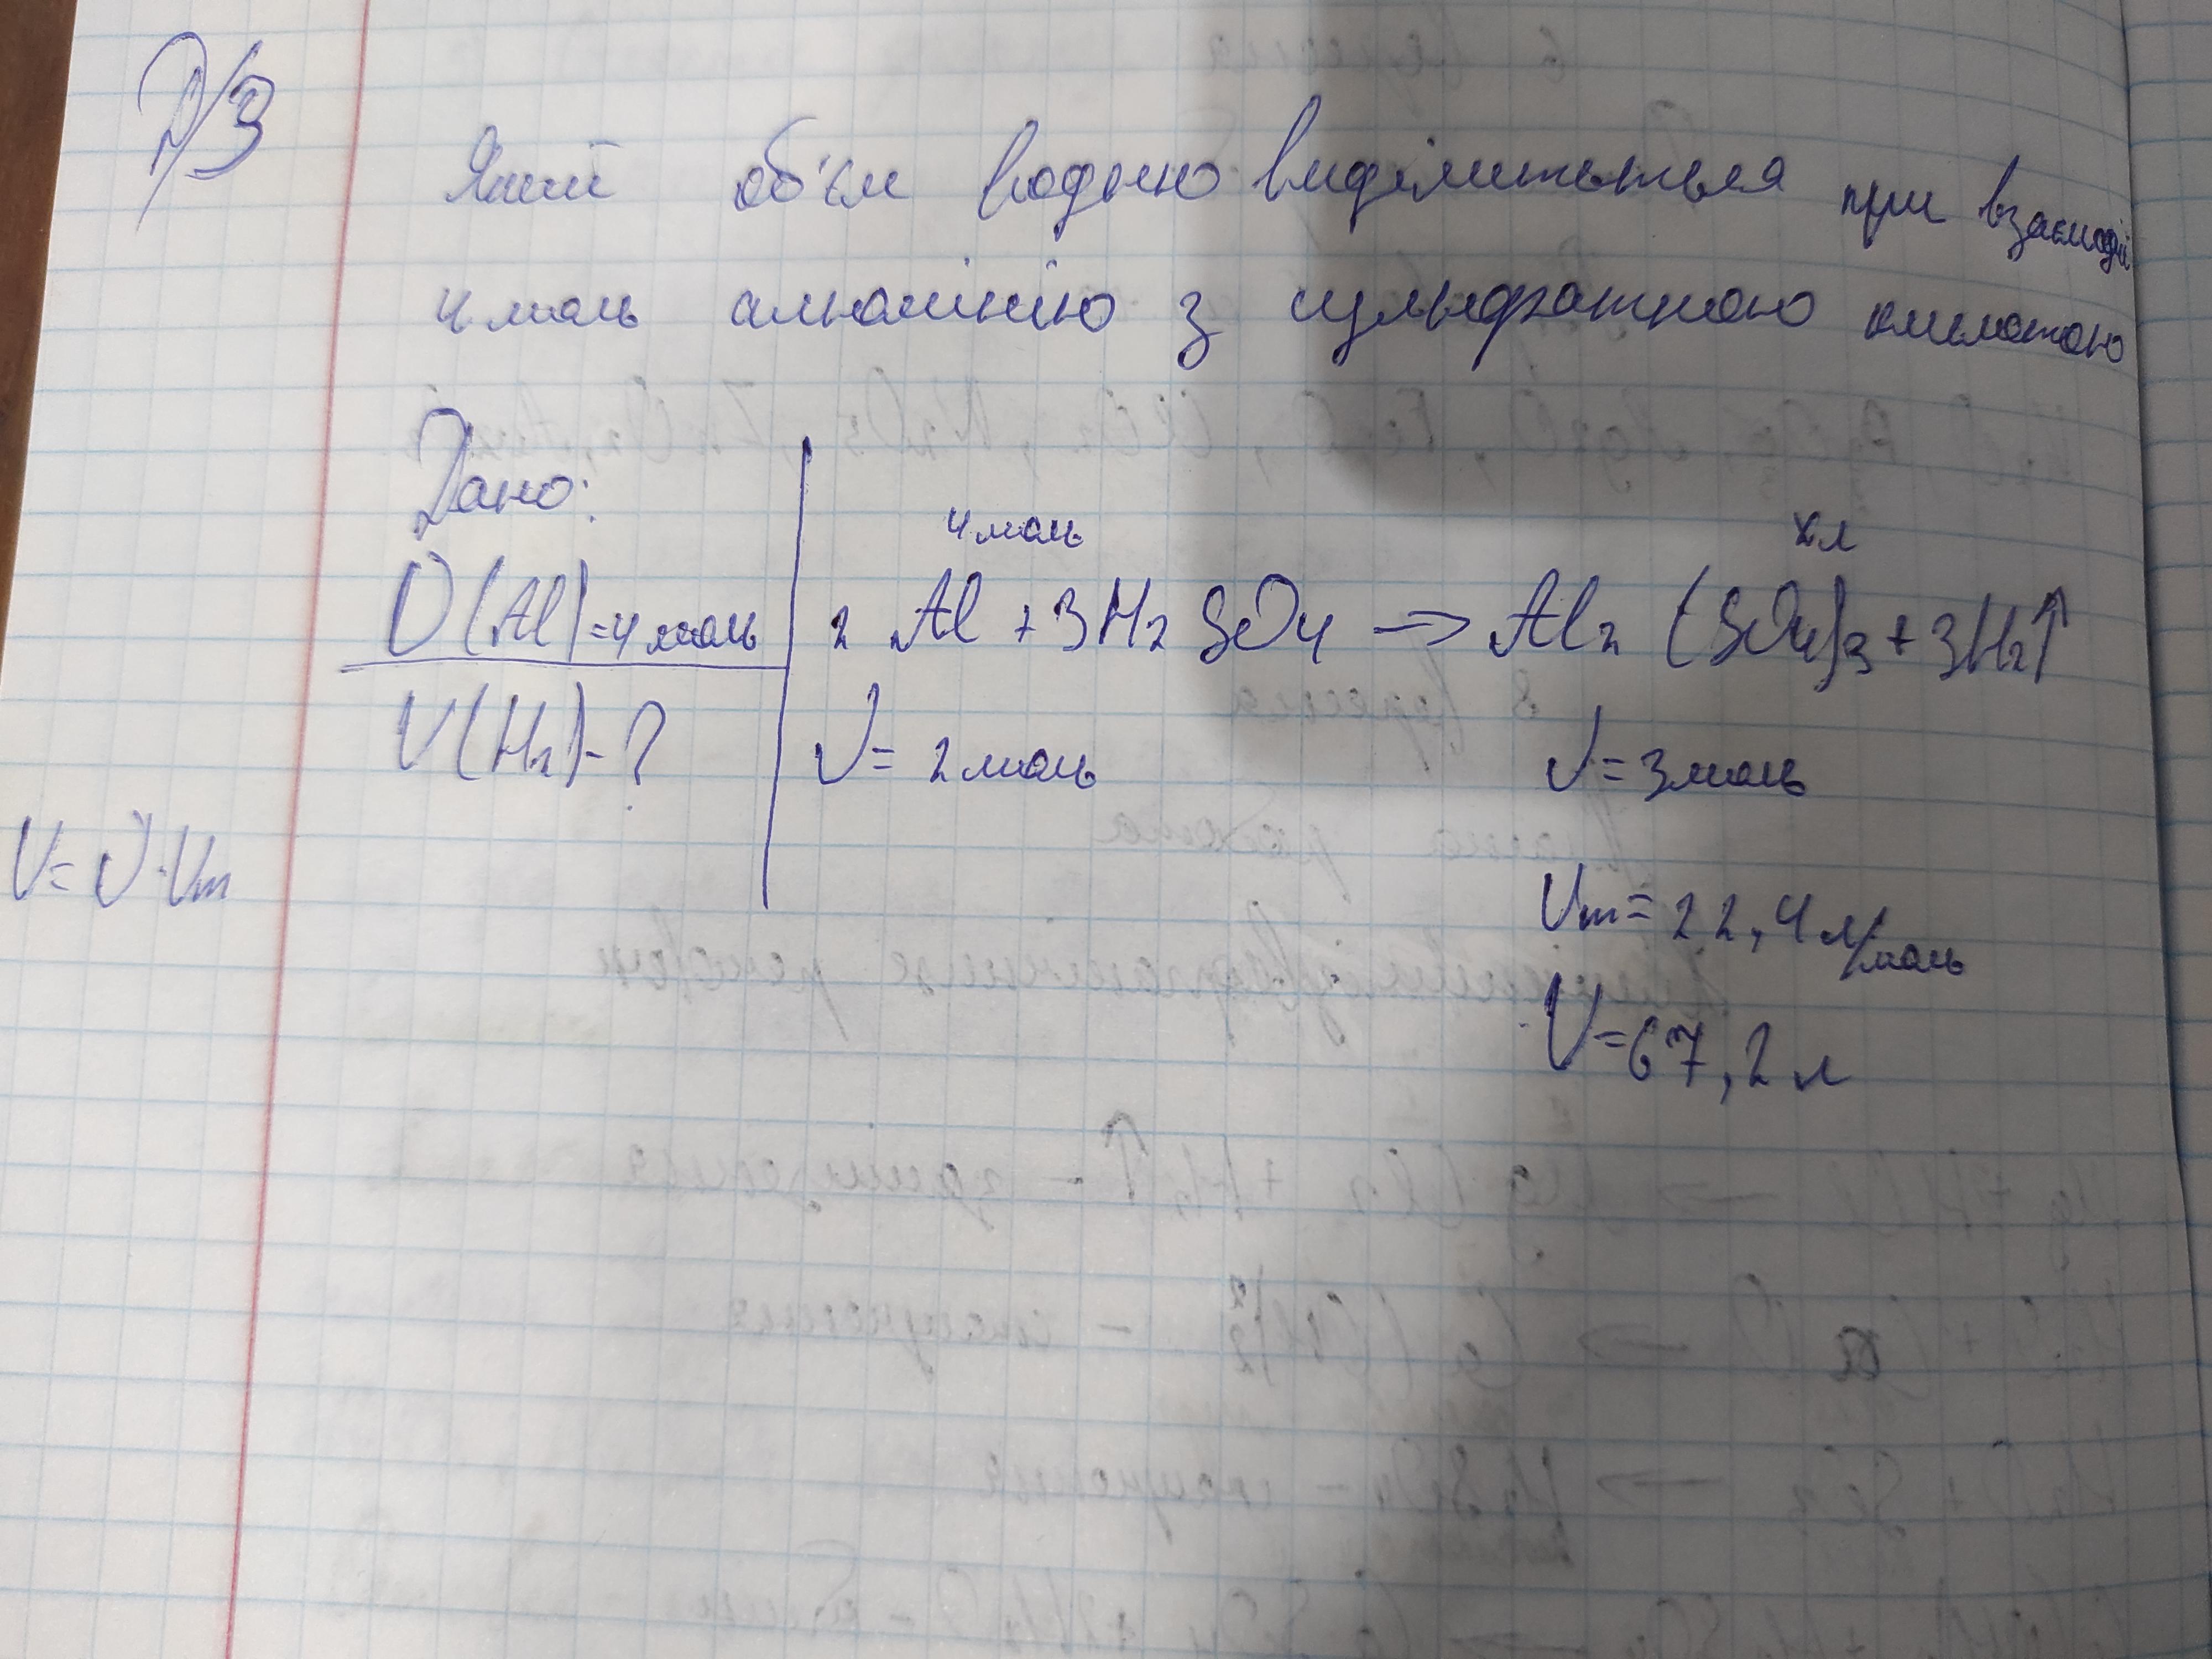 Д/З
Який об'єм водню виділиться при взаємодії
4 моль алюмінію з сульфатною кислотою
Дано:
4 моль х л
υ(Al)=4 моль 2 Al + 3H2 SO4 → Al2 (SO4)3 + 3H2↑
V(H2)-? υ= 2 моль υ=3моль
V= υ·Vm
Vm= 22,4 л/моль
V=67,2 л